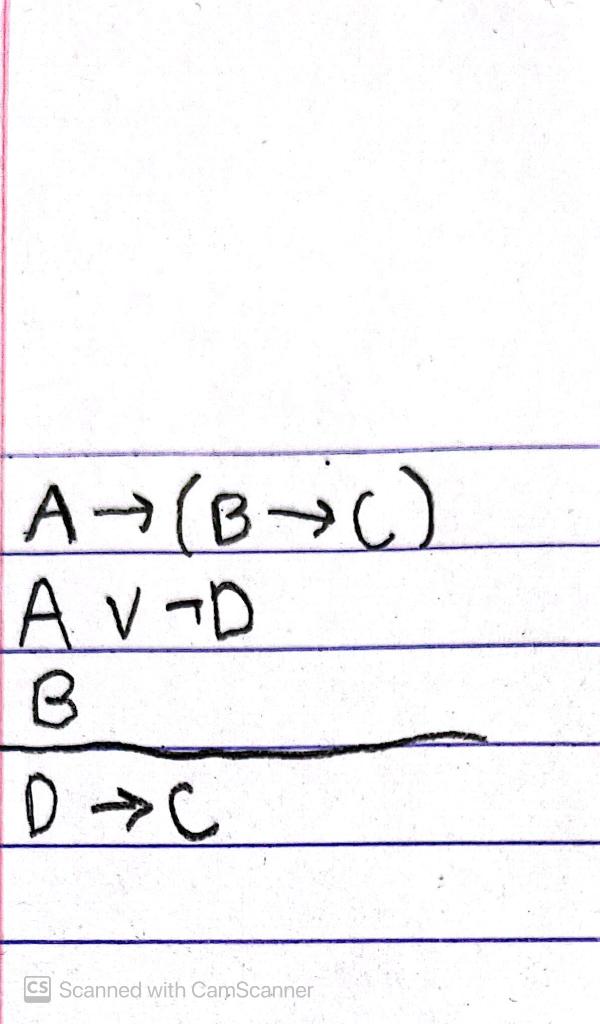 A → (B → C)
A ∨ ¬D
B
D → C
CS Scanned with CamScanner